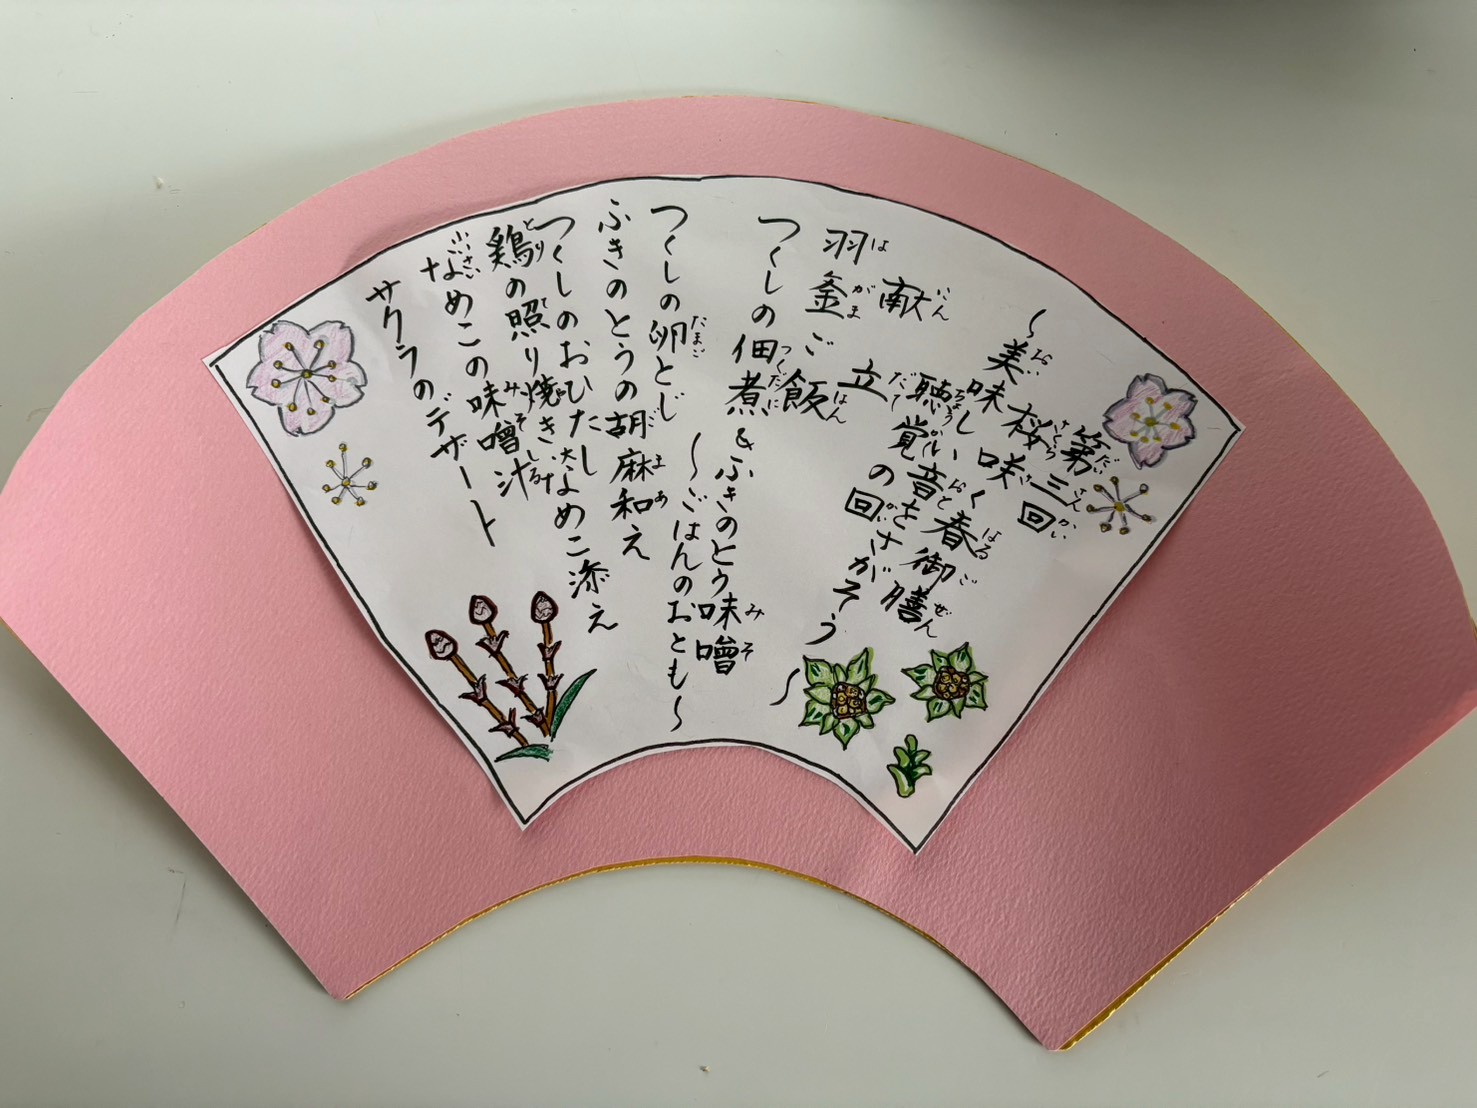 第三回
桜咲く春御膳
～美味しい音をさがそう～
聴覚の回
献立
羽釜ご飯
つくしの佃煮&ふきのとう味噌
～ごはんのおとも～
つくしの卵とじ
ふきのとうの胡麻和え
つくしのおひたし
鶏の照り焼き 大なめこ添え
小なめこの味噌汁
サクラのデザート